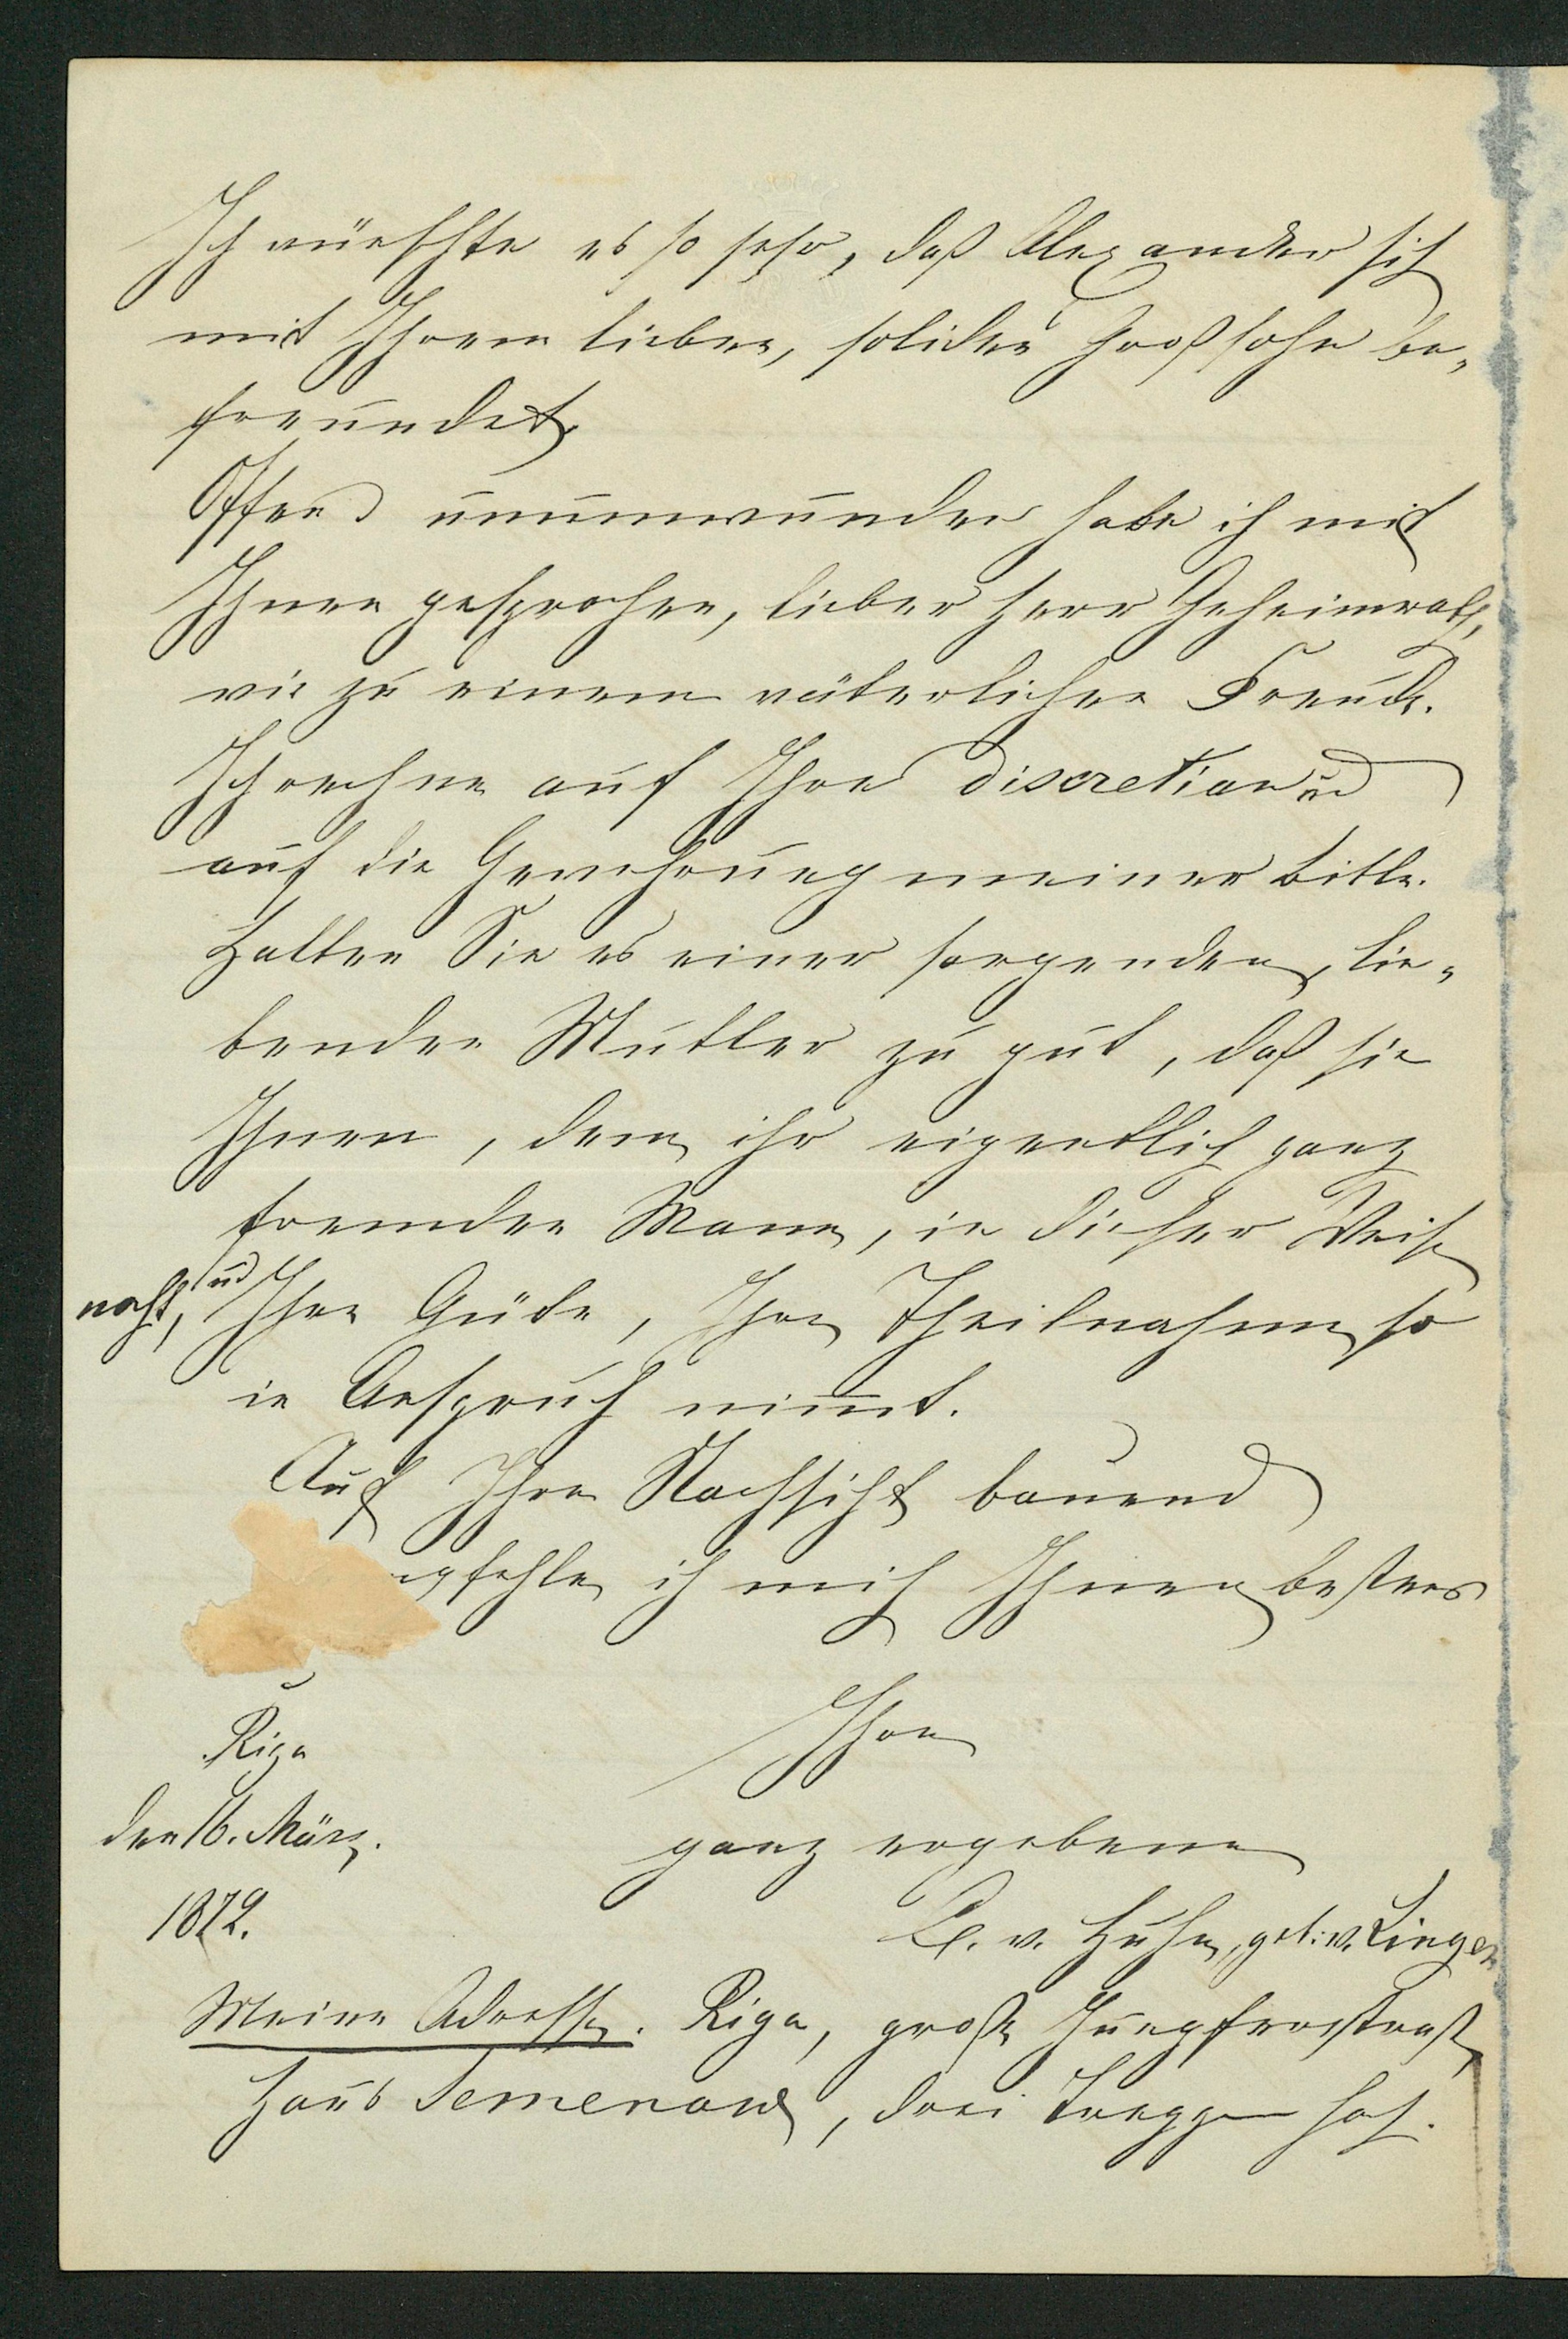 Ich wünschte es so sehr, daß Alexander sich
mit Ihrem lieben, soliden Großsohn be-
freundet.
Offen u unumwunden habe ich mit
Ihnen gesprochen, lieber Herr Geheimrath,
wie zu einem väterlichen Freunde.
Ich rechne auf Ihre Discretion und
auf die Gewährung meiner Bitte.
Halten Sie es einer sorgenden, lie-
benden Mutter zu gut, daß sie
Ihnen, dem ihr eigentlich ganz
fremden Mann, in dieser Weise
naht, und Ihre Güte, Ihre Theilnahme so
in Anspruch nimmt.
Auf Ihre Nachsicht bauend
empfehle ich mich Ihnen bestens
Ihre
Riga
den 16. März.
ganz ergebene
1872.
v. Huhn, geb: v. Lingen
Meine Adresse. Riga, große Jungfernstraße,
Haus Semenow, drei Treppen hoch.